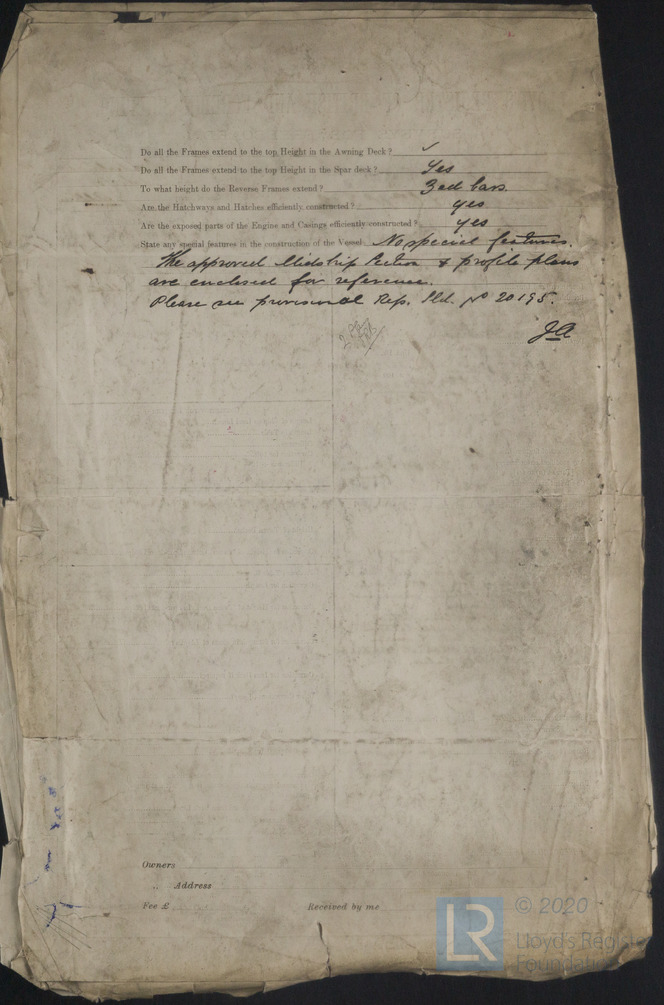 Do all the Frames extend to the top Height in the Awning Deck? ✓
Do all the Frames extend to the top Height in the Spar deck? Yes
To what height do the Reverse Frames extend? Zed bars
Are the Hatchways and Hatches efficiently constructed? yes
Are the exposed parts of the Engine and Casings efficiently constructed? yes
State any special features in the construction of the Vessel No special features.
The approved Midship Section & profile plans
are enclosed for reference.
Please see provisional Rep. Sld. No 20195.
JA
Owners
„ Address
Fee £ Received by me
LR © 2020
Lloyd's Register
Foundation